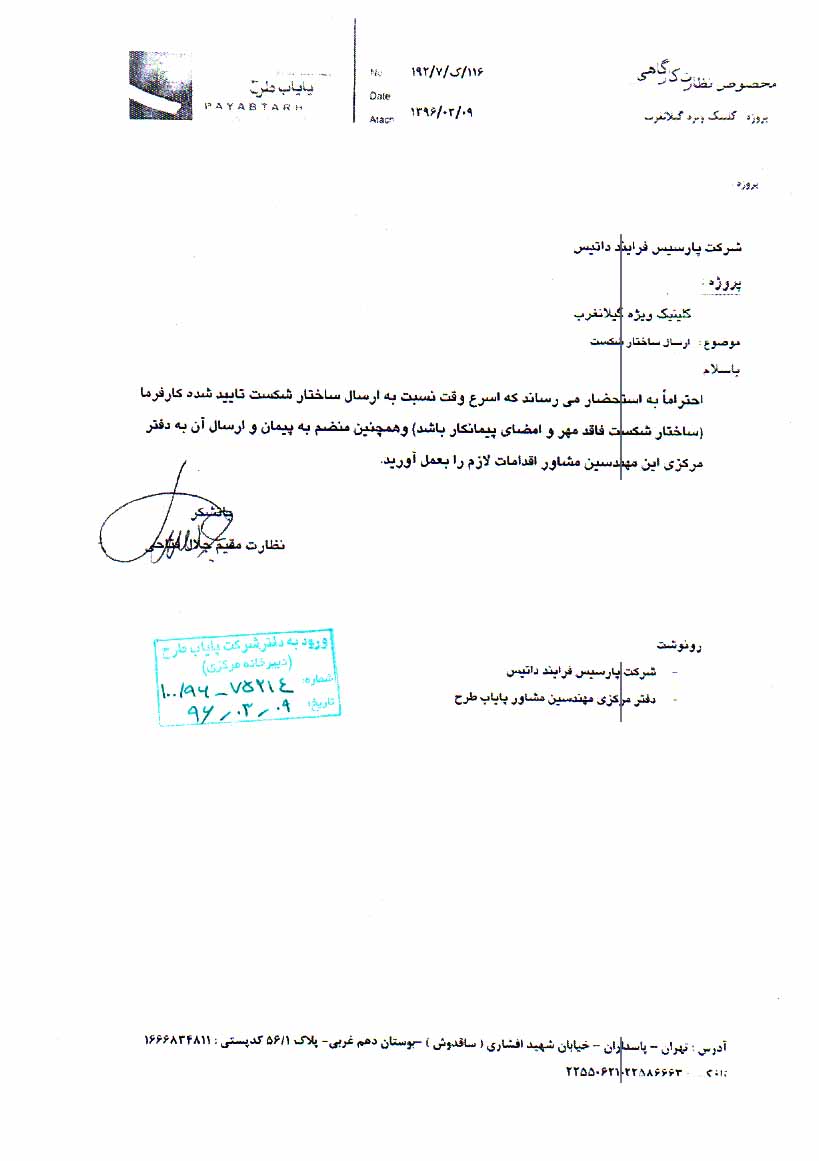 پایاب طرح
PAYABTARH
No ۱۹۲/۷/ک/۱۱۶
Date
Atach ۱۳۹۶/۰۳/۰۹
مخصوص نظارت کارگاهی
پروژه کلینیک ویژه گیلانغرب
پروژه
شرکت پارسیس فرایند داتیس
پروژه :
کلینیک ویژه گیلانغرب
موضوع: ارسال ساختار شکست
باسلام
احتراماً به استحضار می رساند که اسرع وقت نسبت به ارسال ساختار شکست تایید شده کارفرما
(ساختار شکست فاقد مهر و امضای پیمانکار باشد) وهمچنین منضم به پیمان و ارسال آن به دفتر
مرکزی این مهندسین مشاور اقدامات لازم را بعمل آورید.
باتشکر
نظارت مقیم جلال فتاحی
ورود به دفتر شرکت پایاب طرح
(دبیرخانه مرکزی)
شماره: ۱۰۰/۹۶-۷۵۲۱۴
تاریخ: ۹۶/۰۳/۰۹
رونوشت
- شرکت پارسیس فرایند داتیس
- دفتر مرکزی مهندسین مشاور پایاب طرح
آدرس : تهران – پاسداران – خیابان شهید افشاری ( ساقدوش ) –بوستان دهم غربی- پلاک ۵۶/۱ کدپستی : ۱۶۶۶۸۳۴۸۱۱
۲۲۵۵۰۶۲۱-۲۲۵۸۶۶۶۳